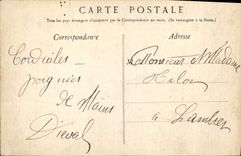 CARTE POSTALE
Tous les pays étrangers n'acceptent pas la Correspondance au recto. (Se renseigner à la Poste.)
Correspondance
Adresse
Cordiales
poignées
de Mains
Dieval
Monsieur et Madame
Halot
à Lambres